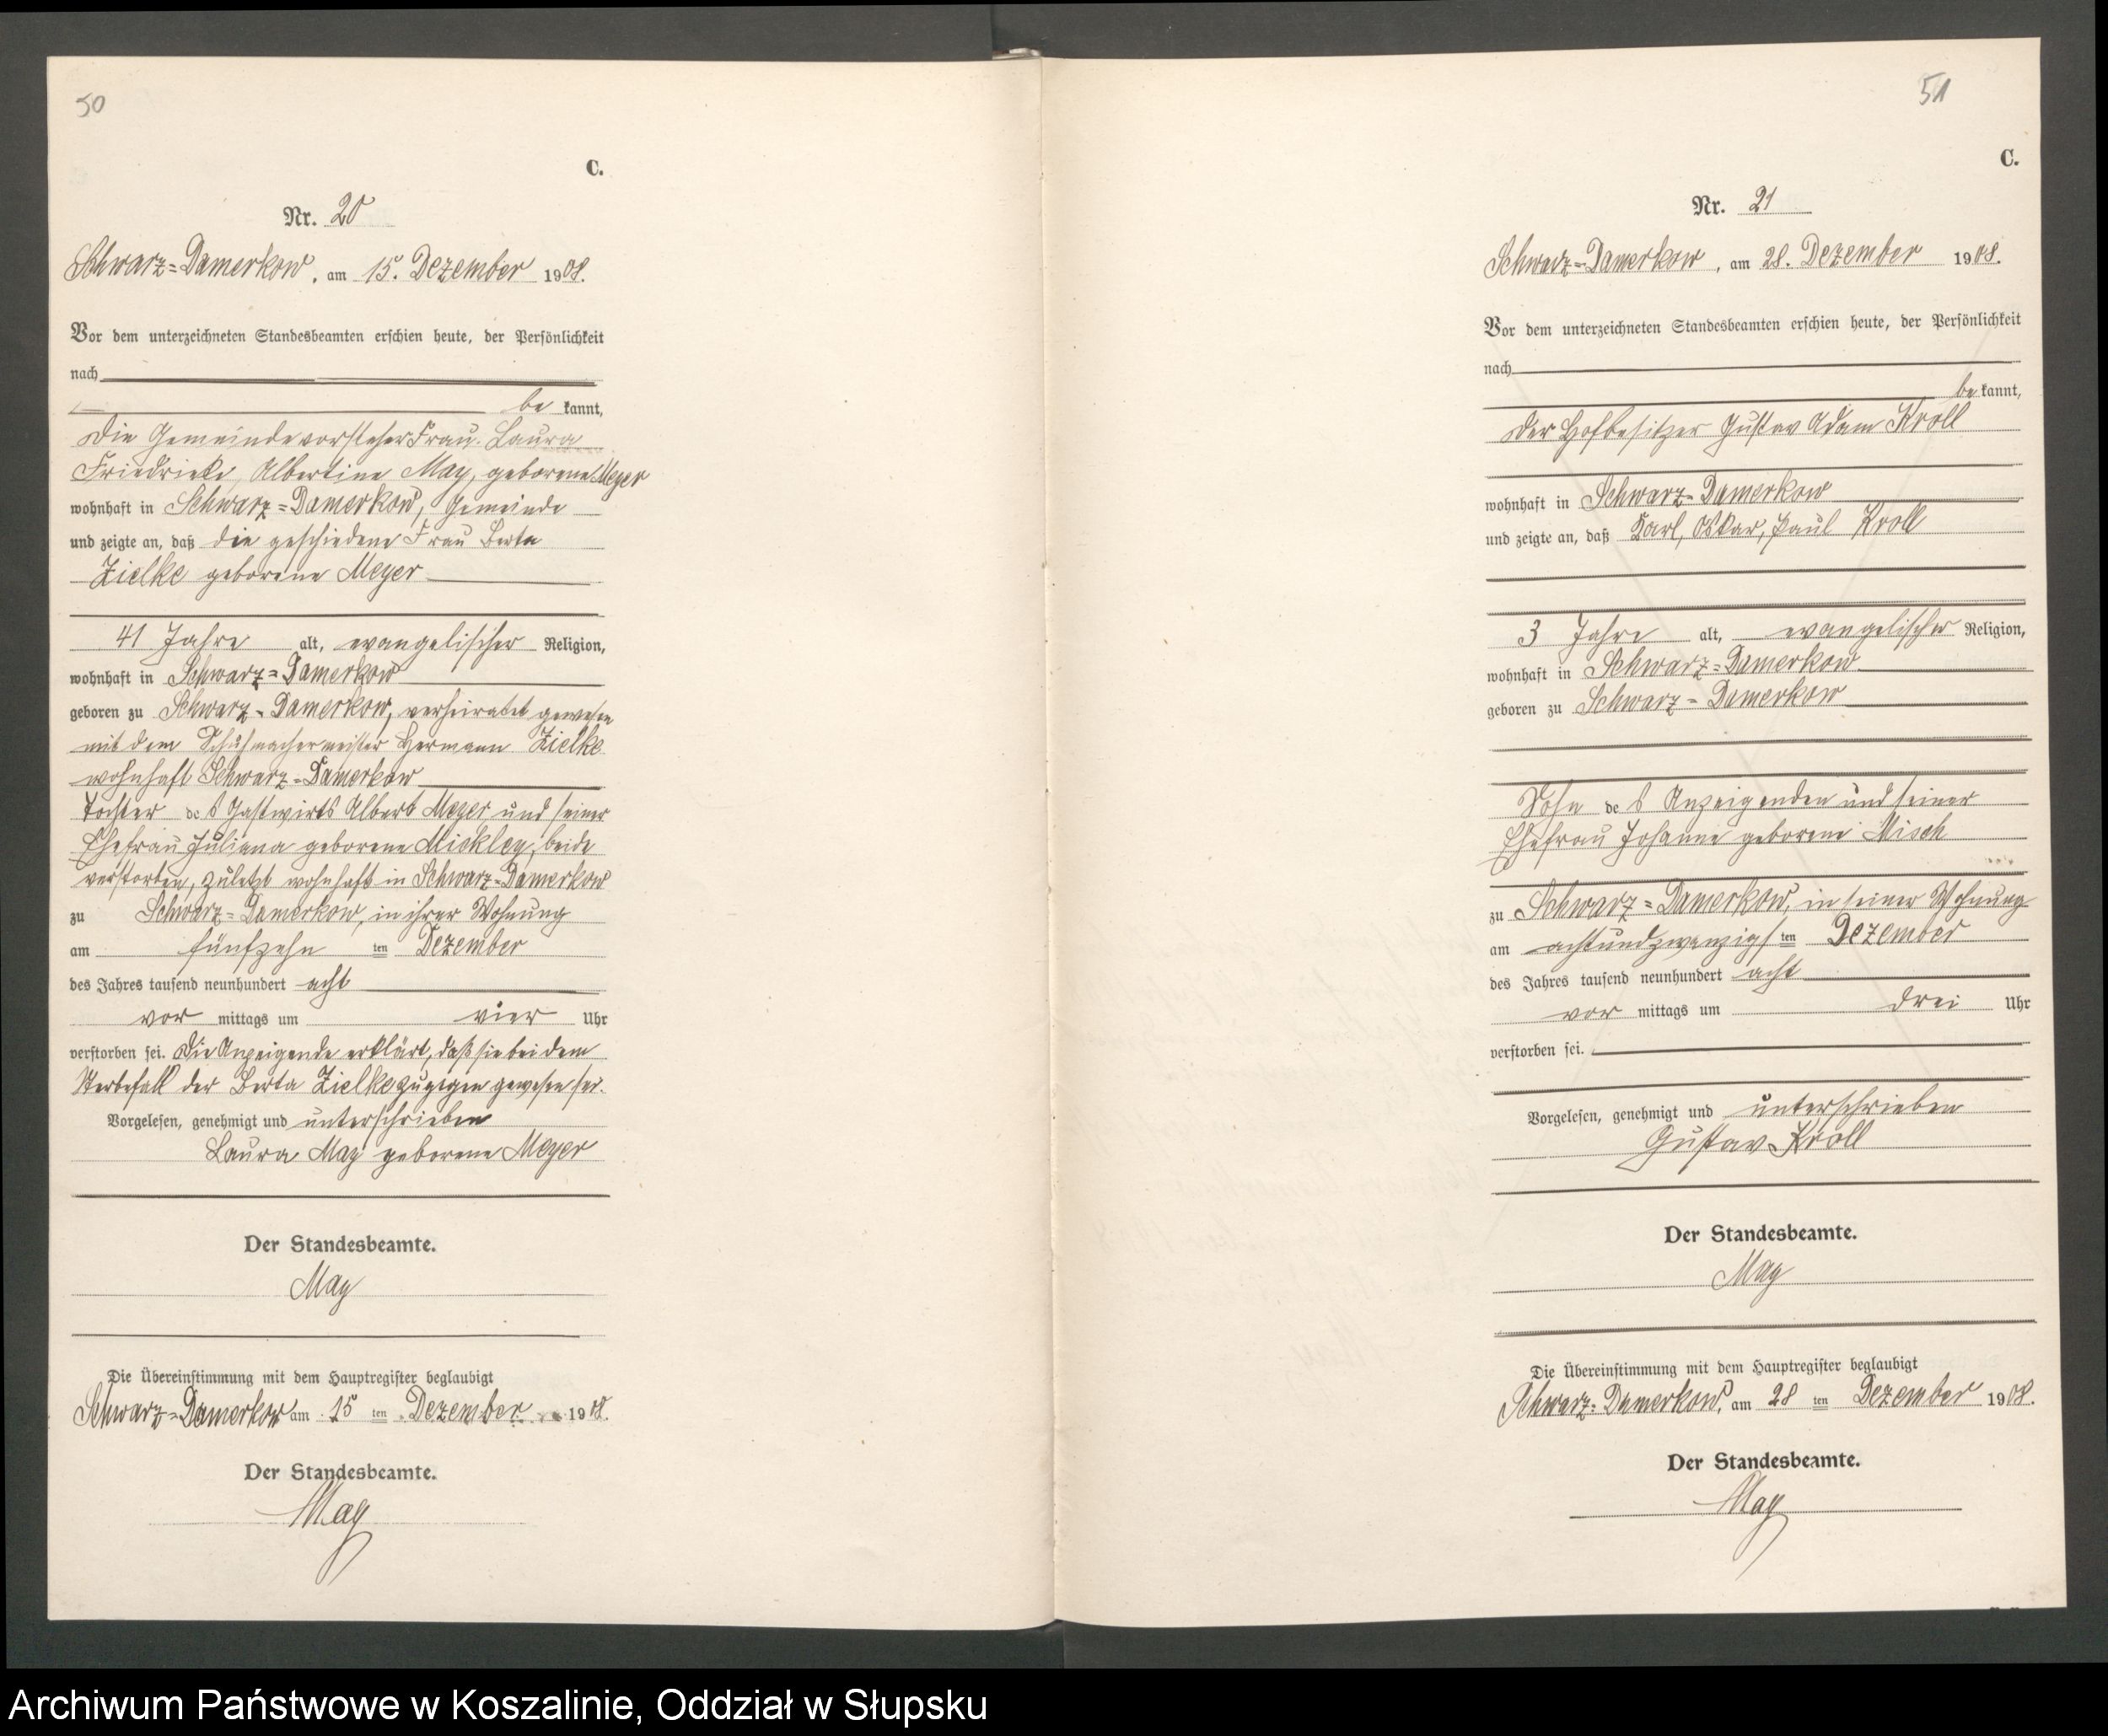 50
C.
Nr. 20
Schwarz=Damerkow, am 15. Dezember 1908.
Vor dem unterzeichneten Standesbeamten erschien heute, der Persönlichkeit
nach
be kannt,
die Gemeindevorsteher Frau Laura
Friedrieke, Albertine May, geborene Meyer
wohnhaft in Schwarz=Damerkow, Gemeinde
und zeigte an, daß die geschiedene Frau Berta
Zielke geborene Meyer
41 Jahre alt, evangelischer Religion,
wohnhaft in Schwarz=Damerkow
geboren zu Schwarz=Damerkow, verheiratet gewesen
mit dem Schuhmachermeister Hermann Zielke
wohnhaft Schwarz=Damerkow
Tochter des Gastwirts Albert Meyer und seiner
Ehefrau Juliana geborene Mickley, beide
verstorben, zuletzt wohnhaft in Schwarz=Damerkow
zu Schwarz=Damerkow, in ihrer Wohnung
am fünfzehn ten Dezember
des Jahres tausend neunhundert acht
vor mittags um vier Uhr
verstorben sei. Die Anzeigende erklärt, daß sie bei dem
Sterbefall der Berta Zielke zugegen gewesen sei.
Vorgelesen, genehmigt und unterschrieben
Laura May geborene Meyer
Der Standesbeamte.
May
Die Übereinstimmung mit dem Hauptregister beglaubigt
Schwarz=Damerkow am 15 ten Dezember 1908.
Der Standesbeamte.
May
51
C.
Nr. 21
Schwarz=Damerkow, am 28. Dezember 1908.
Vor dem unterzeichneten Standesbeamten erschien heute, der Persönlichkeit
nach
be kannt,
der Hofbesitzer Gustav Adam Kroll
wohnhaft in Schwarz=Damerkow
und zeigte an, daß Karl, Oskar, Paul Kroll
3 Jahre alt, evangelischer Religion,
wohnhaft in Schwarz=Damerkow
geboren zu Schwarz=Damerkow
Sohn des Anzeigenden und seiner
Ehefrau Johanne geborene Misch
zu Schwarz=Damerkow, in seiner Wohnung
am achtundzwanzigs ten Dezember
des Jahres tausend neunhundert acht
vor mittags um drei Uhr
verstorben sei.
Vorgelesen, genehmigt und unterschrieben
Gustav Kroll
Der Standesbeamte.
May
Die Übereinstimmung mit dem Hauptregister beglaubigt
Schwarz=Damerkow, am 28 ten Dezember 1908.
Der Standesbeamte.
May
Archiwum Państwowe w Koszalinie, Oddział w Słupsku